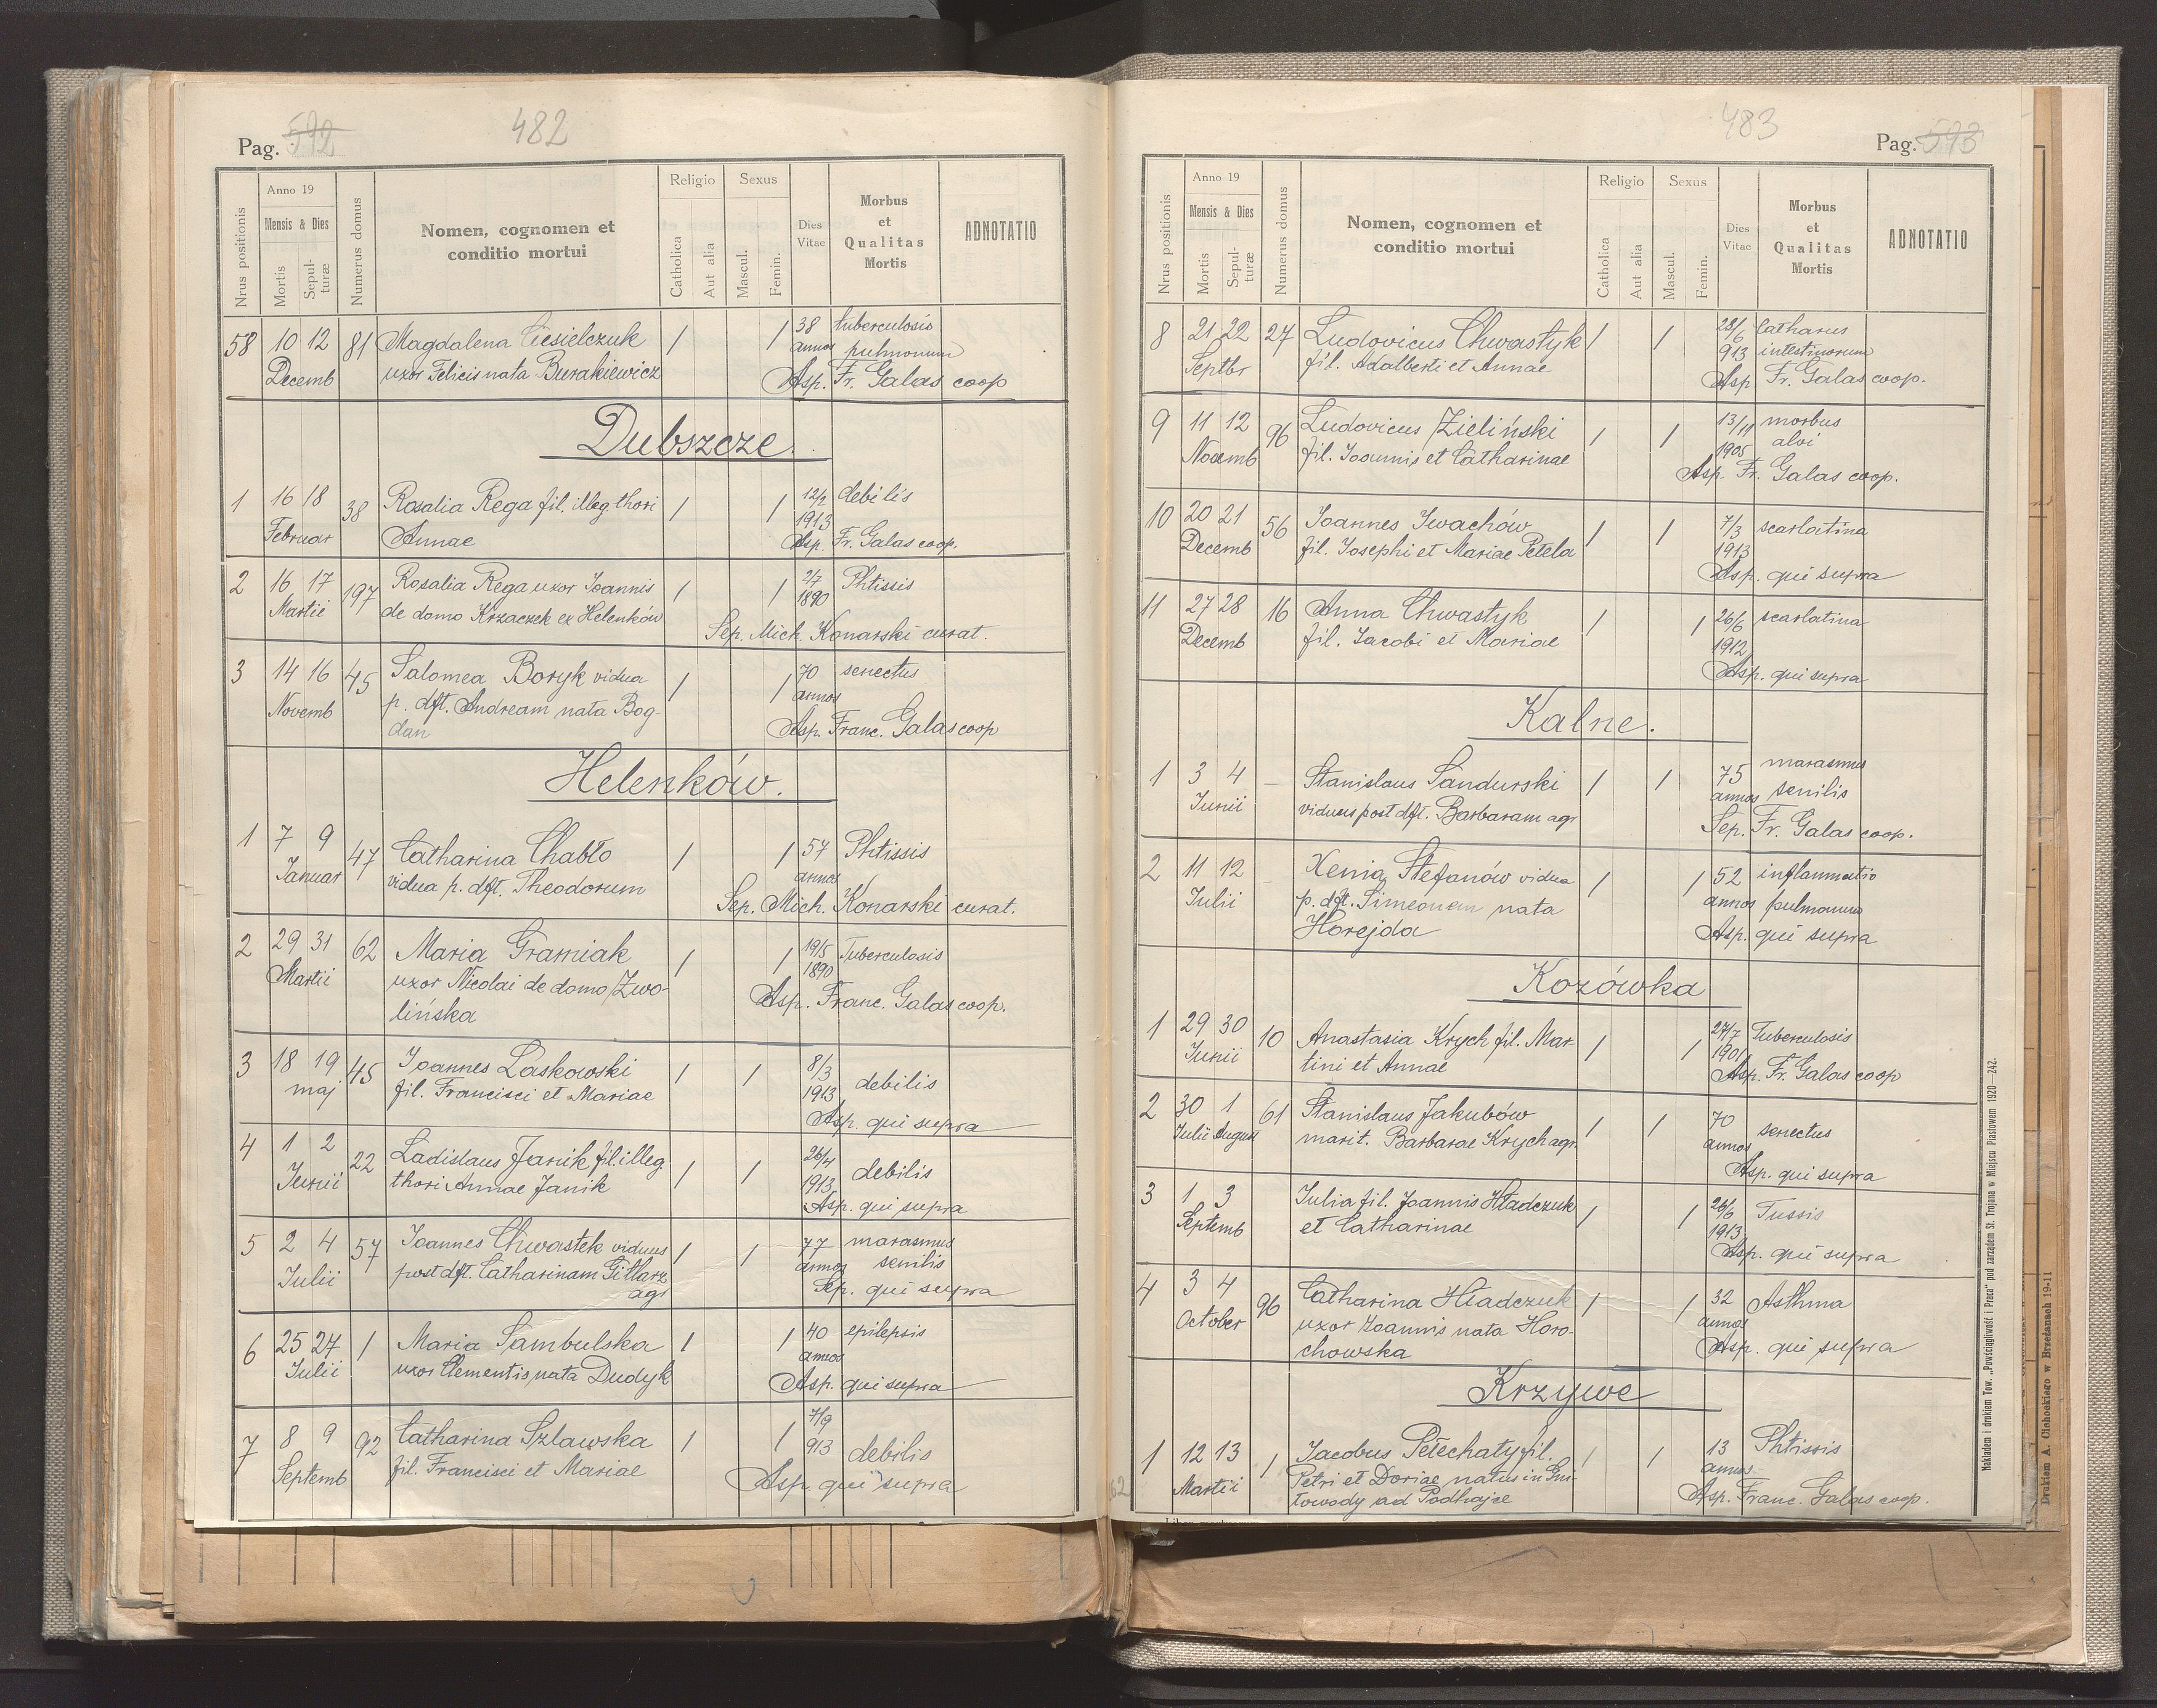 Pag. 592
482
Nrus positionis
Anno 19
Mensis & Dies
Mortis
Sepulturæ
Numerus domus
Nomen, cognomen et
conditio mortui
Religio
Catholica
Aut alia
Sexus
Mascul.
Femin.
Dies
Vitae
Morbus
et
Qualitas
Mortis
ADNOTATIO
58 10 12 81 Magdalena Ciesielczuk / / 38 tuberculosis
Decemb uxor Felicis nata Burakiewicz annos pulmonum
Asp. Fr. Galas coop
Dubszcze.
1 16 18 38 Rosalia Rega fil. illeg. thori / / 12/2 debilis
Februar Annae 1913
Asp. Fr. Galas coop.
2 16 17 197 Rosalia Rega uxor Joannis / / 2/7 Phtissis
Martii de domo Krzaczek ex Helenków 1890
Sep. Mich. Konarski curat.
3 14 16 45 Salomea Boryk vidua / / 70 senectus
Novemb p. dft. Andream nata Bog- annos
dan Asp. Franc. Galas coop
Helenków.
1 7 9 47 Catharina Chabło / / 57 Phtissis
Januar vidua p. dft. Theodorum annos
Sep. Mich. Konarski curat.
2 29 31 62 Maria Gramiak / / 19/5 Tuberculosis
Martii uxor Nicolai de domo Zwo- 1890
lińska Asp. Franc. Galas coop.
3 18 19 45 Joannes Laskowski / / 8/3 debilis
maj fil. Francisci et Mariae 1913
Asp. qui supra
4 1 2 22 Ladislaus Janik fil. illeg. / / 26/4 debilis
Junii thori Annae Janik 1913
Asp. qui supra
5 2 4 57 Joannes Chwastek viduus / / 77 marasmus
Julii post dft. Catharinam Gitlarz annos senilis
agr Sep. qui supra
6 25 27 1 Maria Sambulska / / 40 epilepsis
Julii uxor Clementis nata Dudyk annos
Asp. qui supra
7 8 9 92 Catharina Szlawska / / 7/9 debilis
Septemb fil. Francisci et Mariae 913
Asp. qui supra
483
Pag. 593
Nrus positionis
Anno 19
Mensis & Dies
Mortis
Sepulturæ
Numerus domus
Nomen, cognomen et
conditio mortui
Religio
Catholica
Aut alia
Sexus
Mascul.
Femin.
Dies
Vitae
Morbus
et
Qualitas
Mortis
ADNOTATIO
8 21 22 27 Ludovicus Chwastyk / / 28/6 Catharus
Septbr fil. Adalberti et Annae 913 intestinorum
Asp Fr. Galas coop.
9 11 12 96 Ludovicus Zieliński / / 13/11 morbus
Novemb fil. Joannis et Catharinae 1905 alvi
Asp. Fr. Galas coop.
10 20 21 56 Joannes Iwachów / / 7/3 scarlatina
Decemb fil. Josephi et Mariae Petela 1913
Asp. qui supra
11 27 28 16 Anna Chwastyk / / 26/6 scarlatina
Decemb fil. Jacobi et Mariae 1912
Asp. qui supra
Kalne.
1 3 4 – Stanislaus Sandurski / / 75 marasmus
Junii viduus post dft. Barbaram agr annos senilis
Sep. Fr. Galas coop.
2 11 12 – Xenia Stefanów vidua / / 52 inflammatio
Julii p. dft. Simeonem nata annos pulmonum
Horejda Asp. qui supra
Kozówka
1 29 30 10 Anastasia Krych fil. Mar / / 27/7 Tuberculosis
Junii tini et Annae 1901
Asp. Fr. Galas coop
2 30 1 61 Stanislaus Jakubów / / 70 senectus
Julii August marit. Barbarae Krych agr. annos
Asp. qui supra
3 1 3 Julia fil. Joannis Hładczuk / / 26/6 Tussis
Septemb et Catharinae 1913
Asp. qui supra
4 3 4 96 Catharina Hładczuk / / 32 Asthma
October uxor Joannis nata Horo- annos
chowska Asp. qui supra
Krzywe
1 12 13 1 Jacobus Pełechaty fil. / / 13 Phtissis
Martii Petri et Doriae natus in Gni- annos
łowody ad Podhajce Asp. Franc. Galas coop.
62
Nakładem i drukiem Tow. „Powściągliwość i Praca" pod zarządem St. Trojana w Miejscu Piastowem 1920—242.
Drukiem A. Ciahockiego w Brzeżanach 19-11